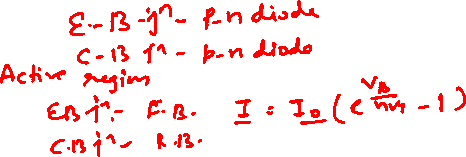 E-B jⁿ - p-n diode
C-B jⁿ - p-n diode
Active region
EB jⁿ - F.B. I = I₀ (e^(V_B/ηV_T) - 1)
C.B jⁿ - R.B.